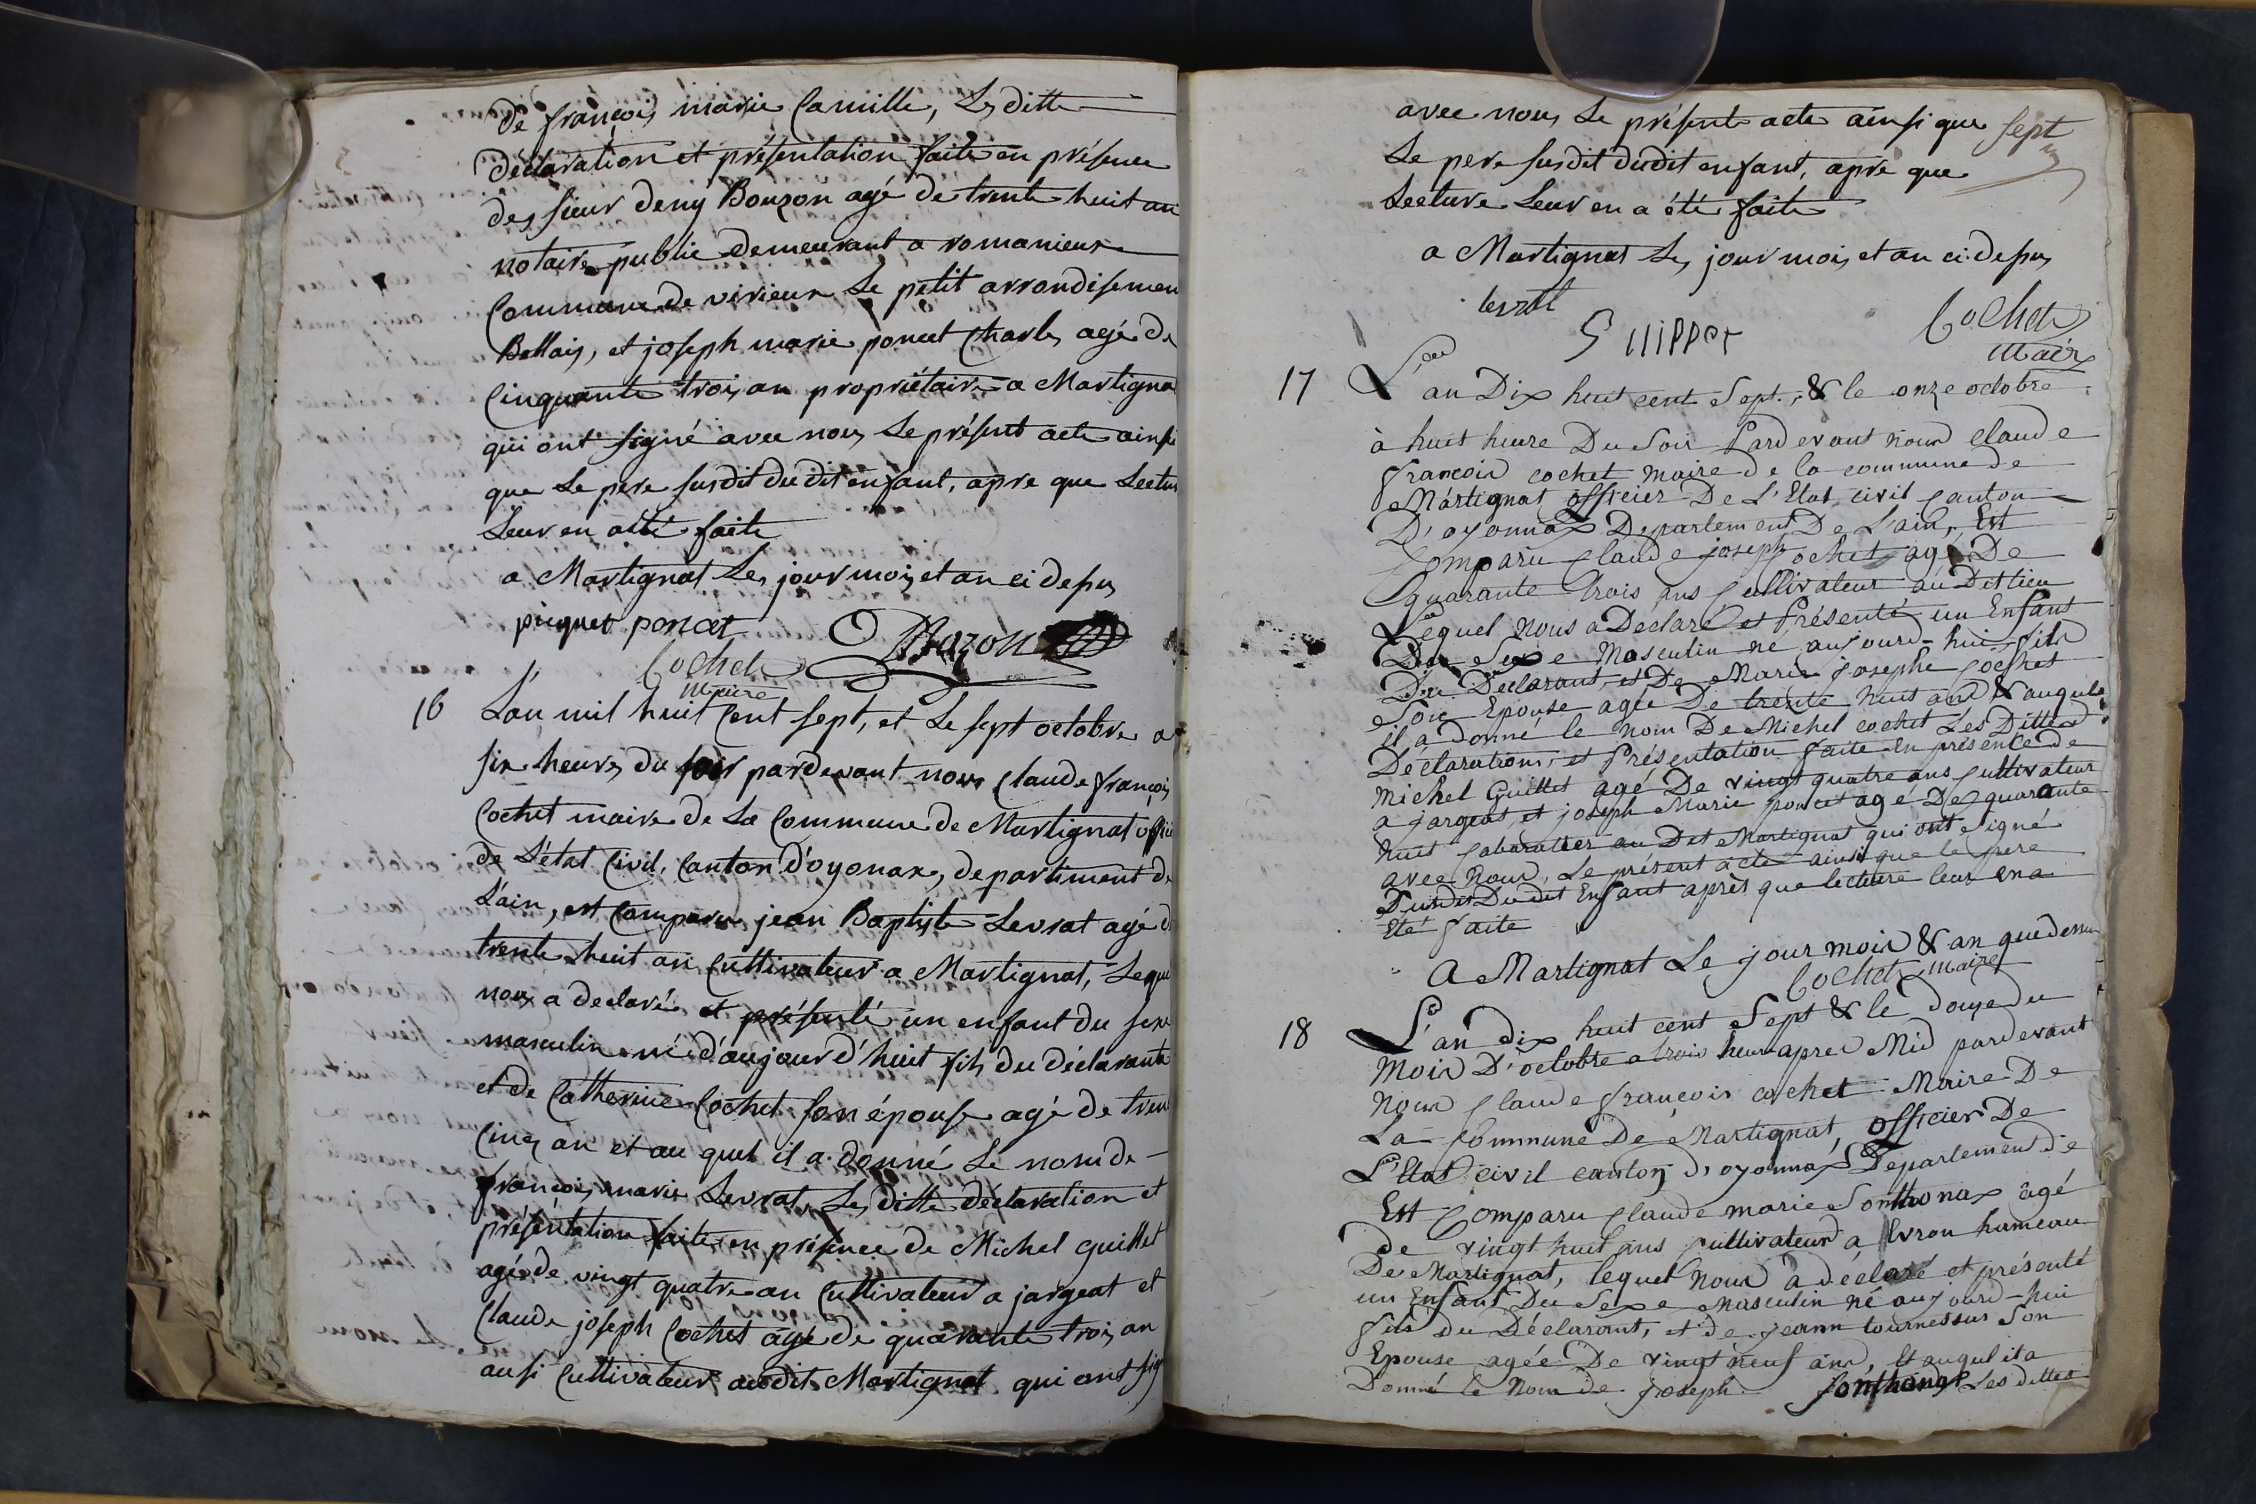 de françois marie Camille, Les ditte
déclaration et présentation faite en présence
des sieur deny Bouzon agé de trente huit an
notaire public demeurant a romanieux
Commune de virieux Le petit arrondisemen
Bellais, et joseph marie poncet Charles agé de
Cinquante trois an propriétaire a Martigna
qui ont signé avec nous Le présent acte ainsi
que Le père susdit du dit enfant, apre que Lectur
Leur en a été faite
a Martignat Les jour mois et an ci depus
piquet poncet
Cochet
Maire
16 L'an mil huit Cent sept, et Le sept octobre a
six heures du soir pardevant nous Claude françois
Cochet maire de La Commune de Martignat offici
de L'état Civil, Canton d'oyonax, departement de
L'ain, est Comparu jean Baptiste Levrat agé de
trente huit an Cultivateur a Martignat, Leque
nous a declaré et présenté un enfant du sexe
masculin né d'aujourd'huit fils du déclarant
et de Catherine Cochet son épouse agé de tren
Cinq an et au quel il a donné Le nom de
françois marie Levrat, Les ditte déclaration et
présentation faite en présence de Michel guillet
agé de vingt quatre an Cultivateur a jargeat et
Claude joseph Cochet agé de quarante trois an
ausi Cultivateur audit Martignat qui ont sig
avec nous Le présent acte ainsi que
sept
Le pere susdit du dit enfant, apre que
Lecture Leur en a été faite
a Martignat Les jour mois et an ci depus
Cochet
Maire
17 L'an Dix huit cent Sept, & le onze octobre
à huit heure Du Soir Pardevant nous Claude
françois cochet maire de la commune de
Martignat officier De L'Etat civil Canton
D'oyonnax Département De L'ain, Est
Comparu Claude joseph Cochet agé De
Quarante Trois ans Cultivateur au Dit lieu
Lequel nous a Declaré et Présenté un Enfant
Du Sexe Masculin né aujourd-hui fils
Du Declarant, et De Marie josephe Cochet
Son Epouse agée De trente huit ans & auquele
il a donné le nom De Michel cochet Les Dittes
Déclaration, et Présentation faite En présence de
Michel Guillet agé De vingt quatre ans Cultivateur
a jargeat, et joseph Marie poncet agé De quarante
huit Cabaratier au Dit Martignat qui ont Signé
avec nous, Le présent acte ainsi que le pere
Susdit Dudit Enfant après que lecture leur en a
Eté faite
A Martignat Le jour mois & an que dessus
Cochet maire
18 L'an dix huit cent Sept & le douze du
Mois D'octobre a trois heur apres Mid pardevant
Nous Claude françois cochet Maire De
La Commune De Martignat, officier De
L'Etat civil canton d'oyonnax Departement de
Est Comparu Claude marie Sonthonax âgé
de vingt huit ans Cultivateur à Evron hameau
De Martignat, lequel nous a déclaré et présenté
un Enfant Du Sexe Masculin né aujourd-hui
fils du Déclarant, et de jeann tournessus Son
Epouse agée De vingt neuf ans, et auquel il a
Donné le Nom de joseph Sonthonax Les dittes